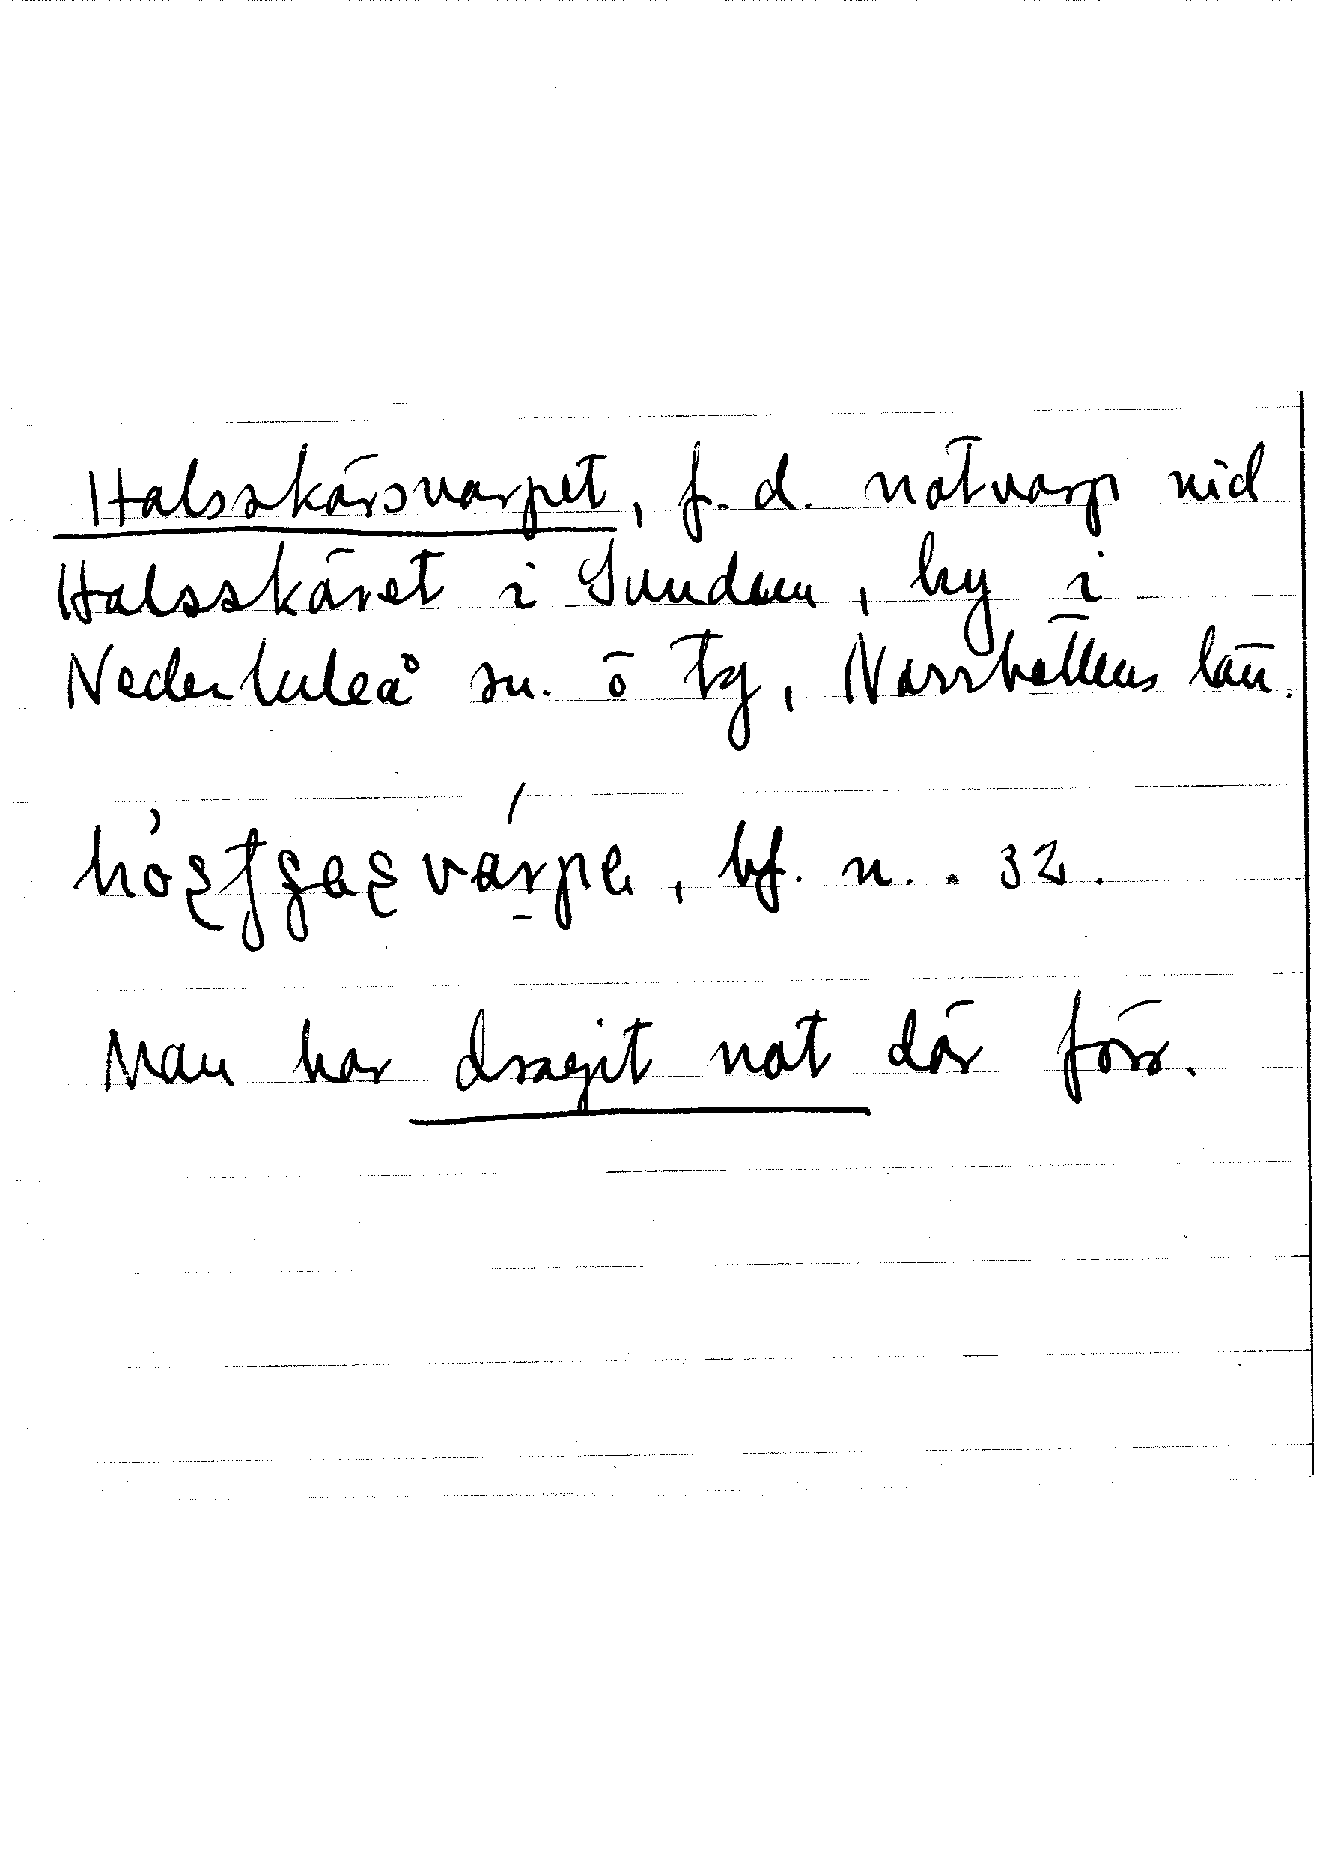 Halsskärsvarpet, f.d. notvarp vid
Halsskäret i Sunden, by i
Nederluleå sn. ö tg, Norrbottens län.
bf. n. . 32.
Man har dragit not där förr.